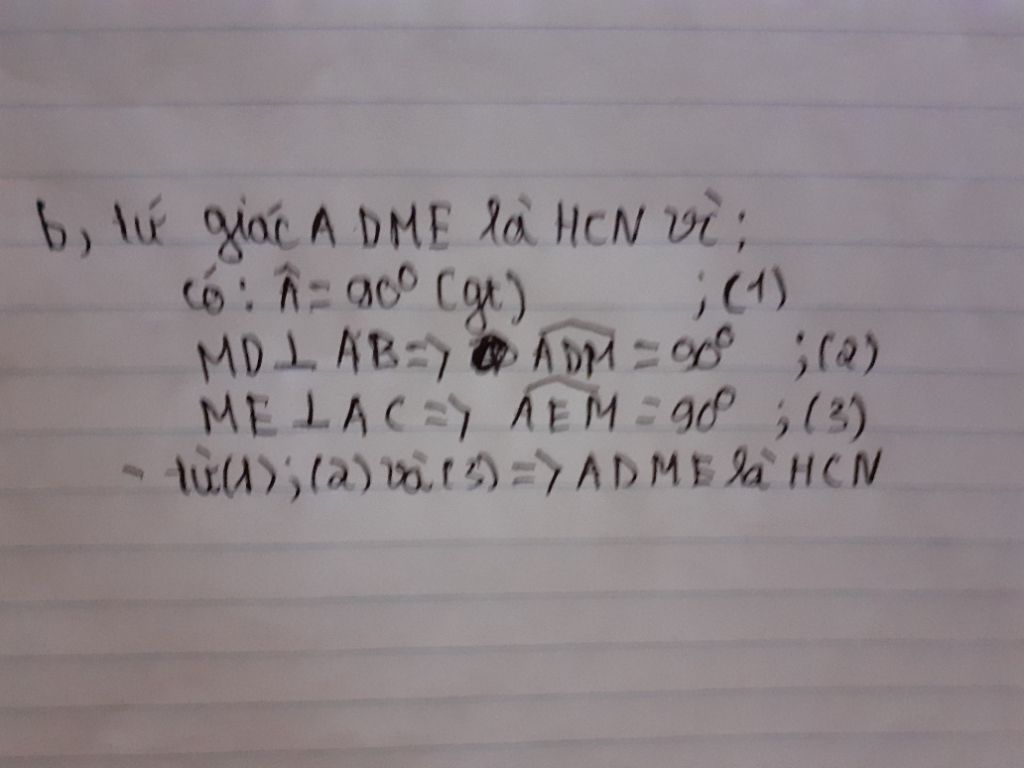 b, tứ giác ADME là HCN vì;
có: Â = 90⁰ (gt) ; (1)
MD ⊥ AB => ADM̂ = 90⁰ ; (2)
ME ⊥ AC => AEM̂ = 90⁰ ; (3)
- từ (1) ; (2) và (3) => ADME là HCN